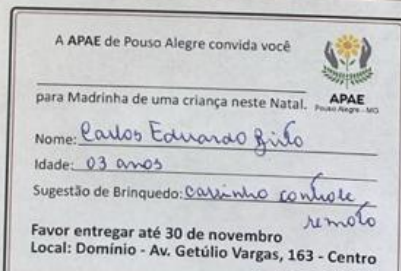 A APAE de Pouso Alegre convida você
para Madrinha de uma criança neste Natal.
APAE
Pouso Alegre - MG
Nome: Carlos Eduardo Brito
Idade: 03 anos
Sugestão de Brinquedo: carrinho controle
remoto
Favor entregar até 30 de novembro
Local: Domínio - Av. Getúlio Vargas, 163 - Centro